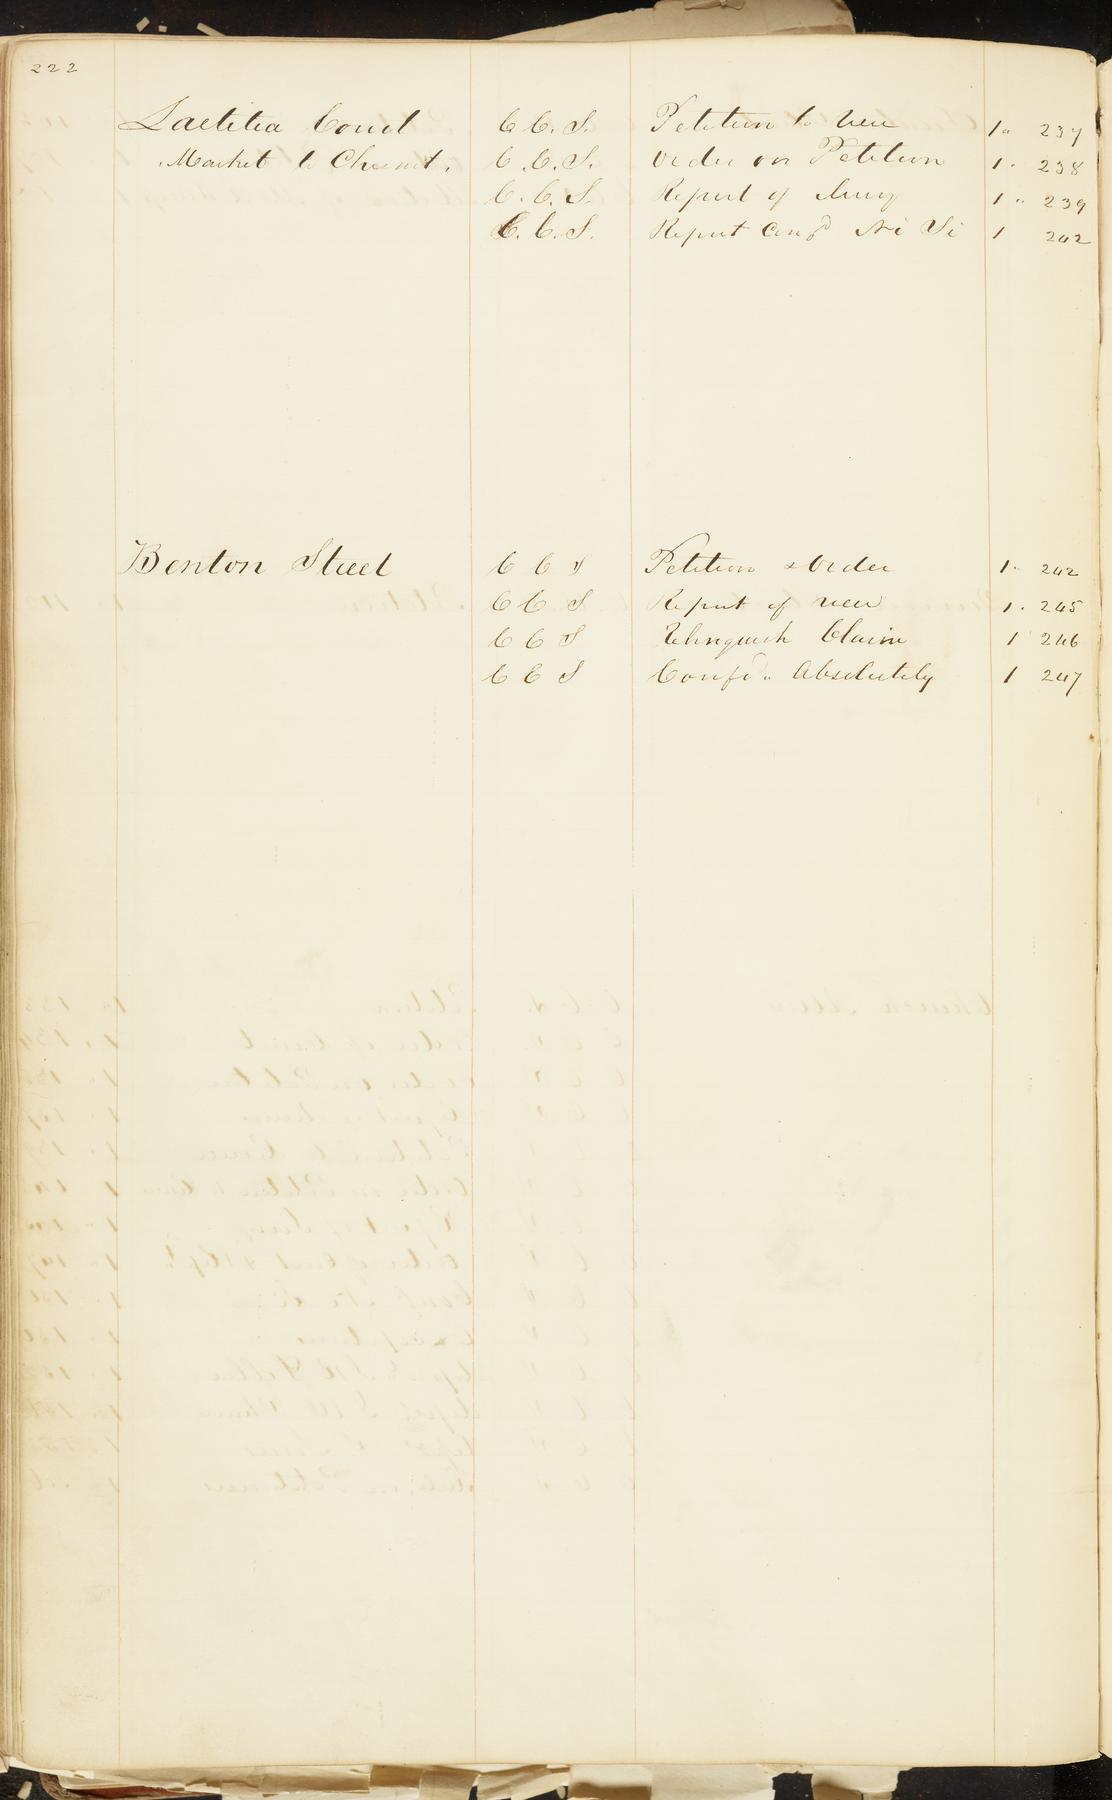 222
Laetitia Court C. C. S. Petition to view 1 " 237
Market to Chesnut. C. C. S. Order on Petition 1 " 238
C. C. S. Report of Jury 1 " 239
C. C. S. Report Conf'd Ni Si 1 242
Benton Street C C S Petition & Order 1 " 242
C C S Report of view 1 . 245
C C S Relinquish Claim 1 246
C C S Conf'd " Absolutely 1 247